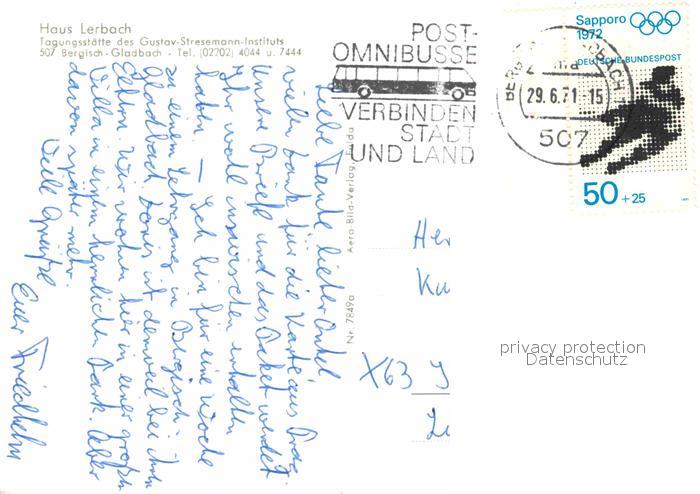 Haus Lerbach
Tagungsstätte des Gustav-Stresemann-Instituts
507 Bergisch-Gladbach - Tel. (02202) 4044 u. 7444
POST-
OMNIBUSSE
VERBINDEN
STADT
UND LAND
29.6.71.-15
507
Sapporo
1972
DEUTSCHE BUNDESPOST
50 + 25
Liebe Tante, lieber Onkel
vielen Dank für die Karte aus Prag.
Unsere Briefe und das Paket werdet
Ihr wohl inzwischen erhalten
haben. — Ich bin für eine Woche
zu einem Lehrgang in Bergisch-
Gladbach. Doris ist derweil bei ihren
Eltern. Wir wohnen hier in einer großen
Villa in einem herrlichen Park. Aber
davon später mehr.
Viele Grüße
Euer Friedhelm
Aero-Bild-Verlag, Fulda
Nr. 7849a
Her
Ku
X63
privacy protection
Datenschutz